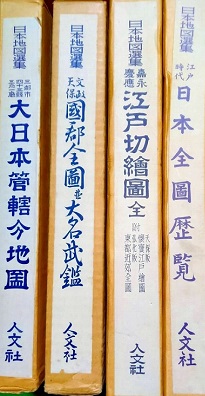 日本地図選集
三都市
四十三縣
三府
大日本管轄分地圖
人文社
日本地図選集
文政
天保
國郡全圖並大名武鑑
人文社
日本地図選集
嘉永
慶應
江戸切繪圖
全
人文社
日本地図選集
江戸
時代
日本全圖歴覧
人文社